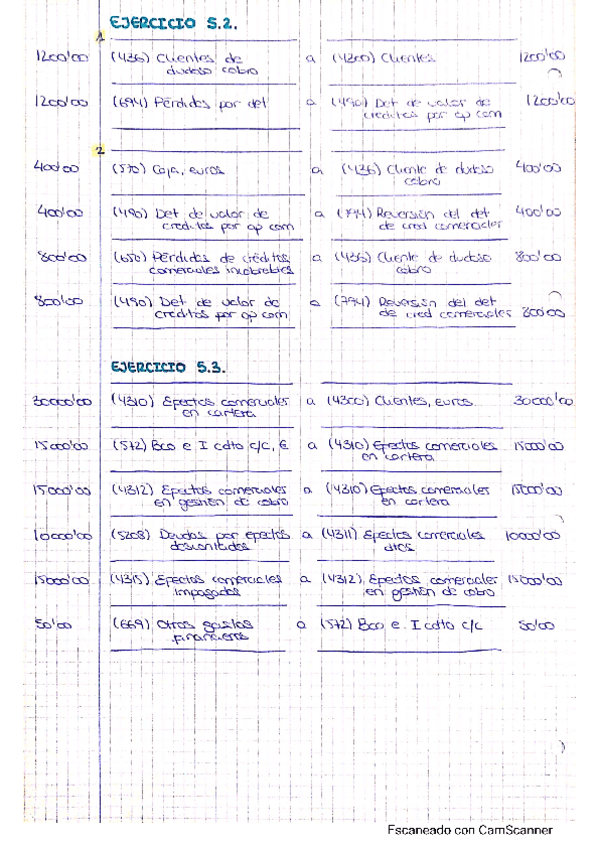 EJERCICIO 5.2.
1
1200'00 (436) Clientes de a (4300) Clientes 1200'00
dudoso cobro
1200'00 (694) Pérdidas por det a (490) Det de valor de 1200'00
creditos por op com
2
400'00 (570) Caja, euros a (436) Cliente de dudoso 400'00
cobro
400'00 (490) Det de valor de a (794) Reversión del det 400'00
creditos por op com de cred comerciales
800'00 (650) Pérdidas de créditos a (436) Cliente de dudoso 800'00
comerciales incobrables cobro
800'00 (490) Det de valor de a (794) Reversión del det
creditos por op com de cred comerciales 800'00
EJERCICIO 5.3.
30000'00 (4310) Efectos comerciales a (4300) Clientes, euros 30000'00
en cartera
15000'00 (572) Bco e I cdto c/c, € a (4310) Efectos comerciales 15000'00
en cartera
15000'00 (4312) Efectos comerciales a (4310) Efectos comerciales 15000'00
en gestión de cobro en cartera
10000'00 (5208) Deudas por efectos a (4311) Efectos comerciales 10000'00
descontados dtos
15000'00 (4315) Efectos comerciales a (4312) Efectos comerciales 15000'00
impagados en gestión de cobro
50'00 (669) Otros gastos a (572) Bco e I cdto c/c 50'00
financieros
Escaneado con CamScanner